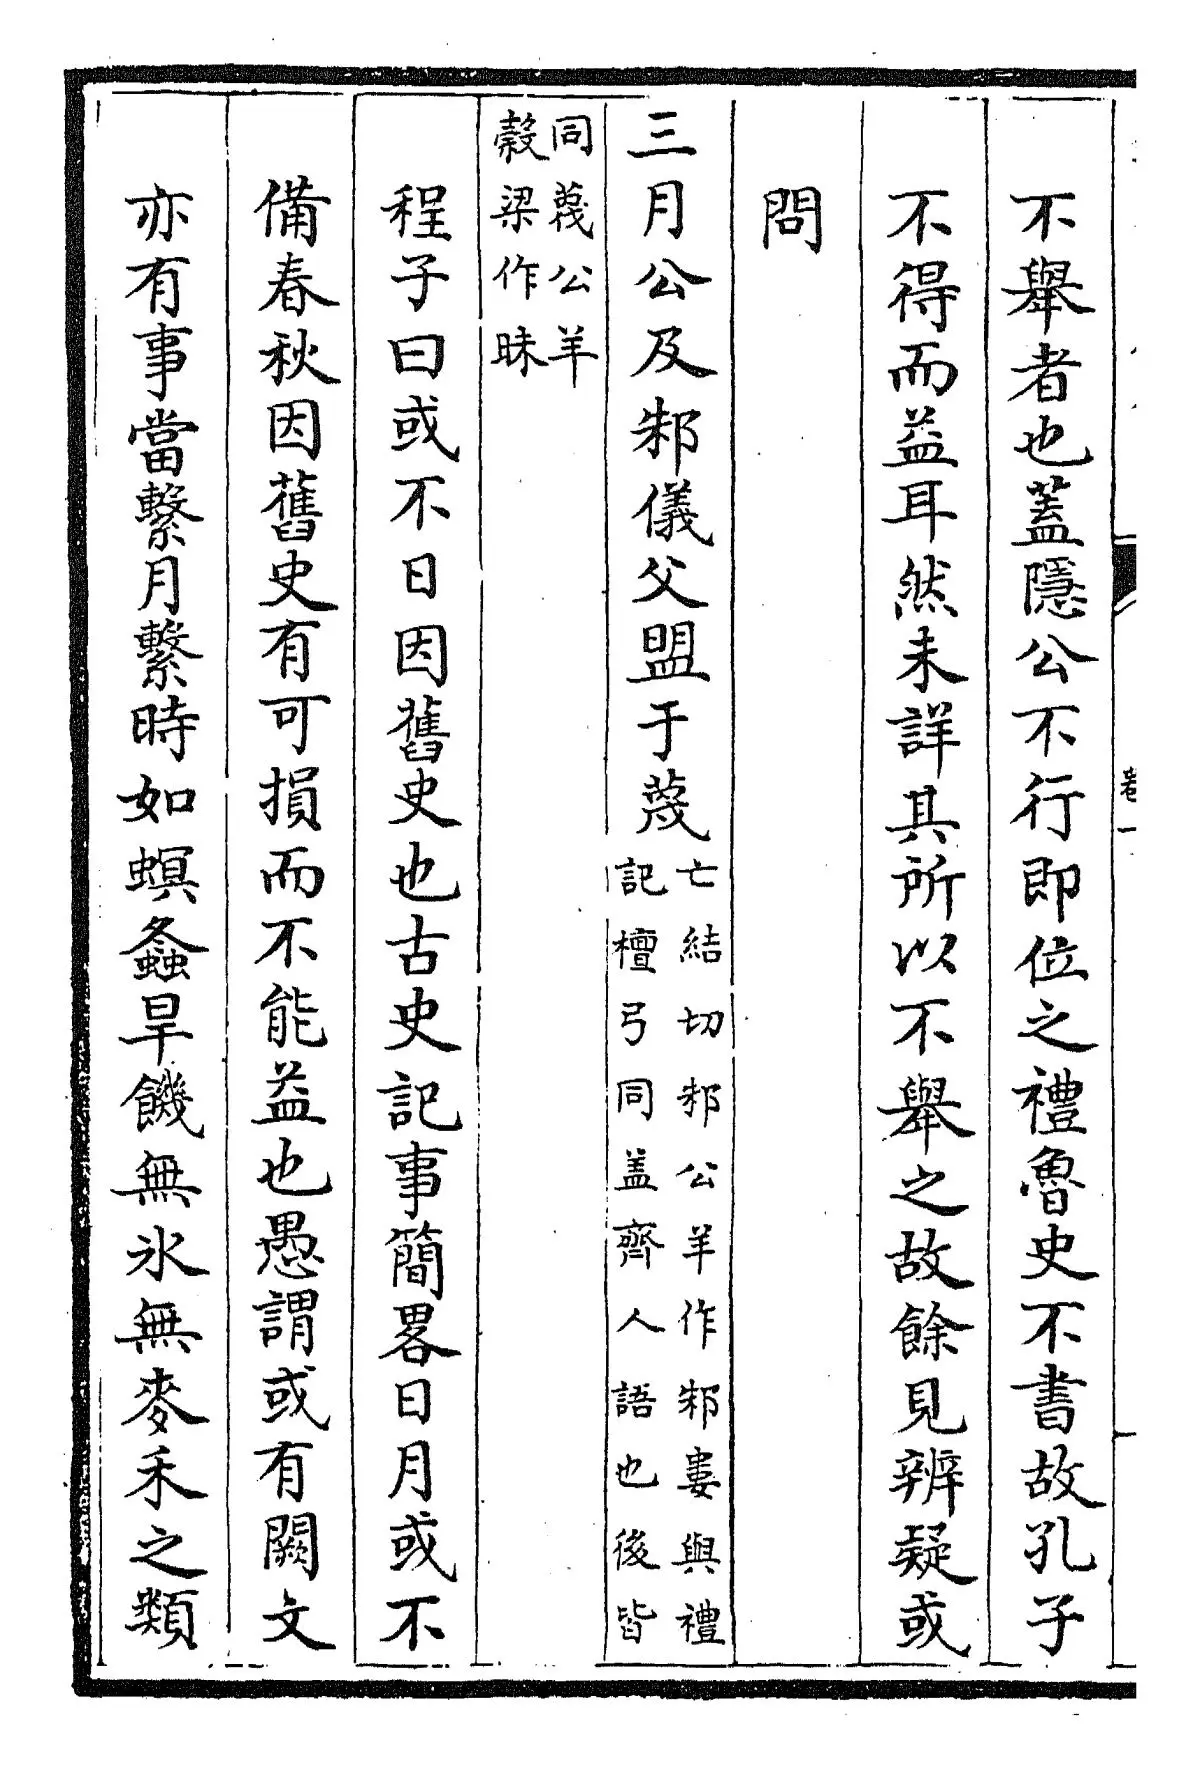 不舉者也蓋隱公不行即位之禮魯史不書故孔子
不得而益耳然未詳其所以不舉之故餘見辨疑或
問
三月公及邾儀父盟于蔑亡結切邾公羊作邾婁與禮
記檀弓同盖齊人語也後皆
同蔑公羊
榖梁作昧
程子曰或不日因舊史也古史記事簡畧日月或不
備春秋因舊史有可損而不能益也愚謂或有闕文
亦有事當繫月繫時如螟螽旱饑無氷無麥禾之類
卷一